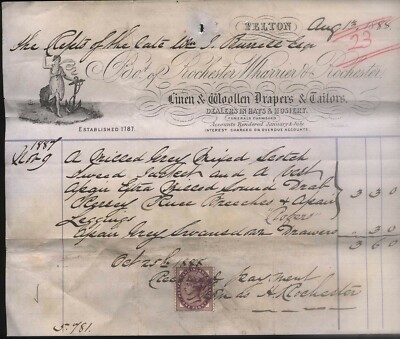 FELTON Aug 13 1888
23
The Repts of the late Wm J. Burrell Esqr
Bot. of Rochester Wharrier & Rochester
Linen & Woollen Drapers & Tailors,
DEALERS IN HATS & HOSIERY.
FUNERALS FURNISHED
Accounts Rendered January & July.
INTEREST CHARGED ON OVERDUE ACCOUNTS.
ESTABLISHED 1787.
1887
Nov 9 A Milled Grey Mixed Scotch
Tweed Jacket and a Vest
Apair Extra Milled Drab
Breeches & Apair 3 3 0
Leggings
Apair Grey Drawers " 3 0
3 6 0
Oct 25th 1888
Received payment
H. Rochester
5.781.